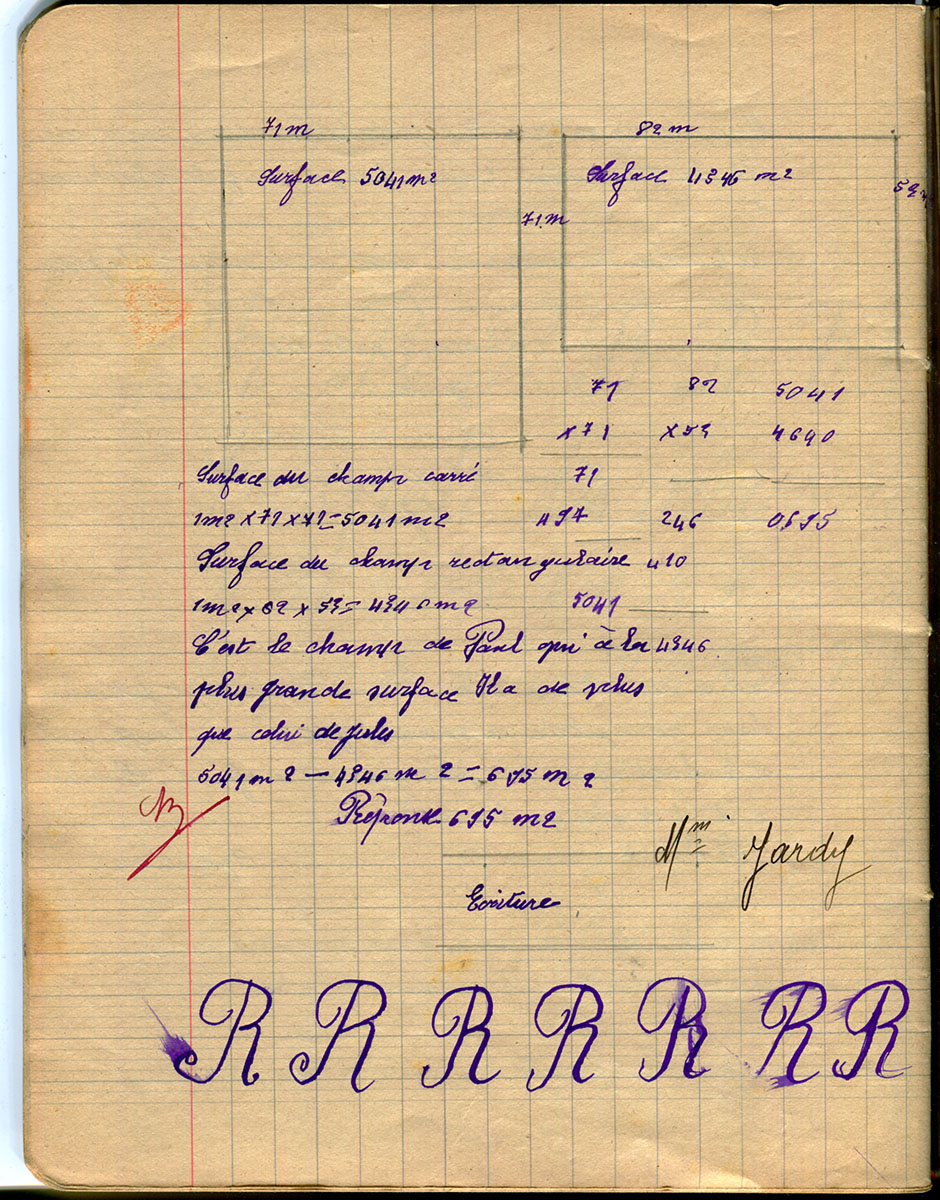 71 m
82 m
Surface 5041 m2
Surface 4346 m2
53 m
71 m
71 82 5041
x71 x53 4640
71
Surface du champ carré
1m2 x 71 x 71 = 5041 m2
497 246 0695
Surface du champ rectangulaire
410
1m2 x 82 x 53 = 4346 m2
5041
C'est le champ de Paul qui à la
4346
plus grande surface Il a de plus
que celui de Jules
5041 m2 — 4346 m2 = 695 m2
B
Réponse 695 m2
Mme Jardy
Ecriture
R R R R R R R